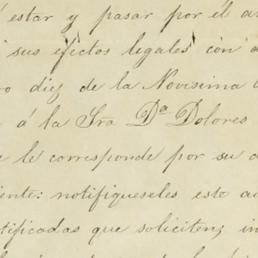 estar y pasar por él a
sus efectos legales con a
ro diez de la Novisima
á la Sra Dª Dolores
le corresponde por su
iente: notifiqueseles este au
tificadas que soliciten; in